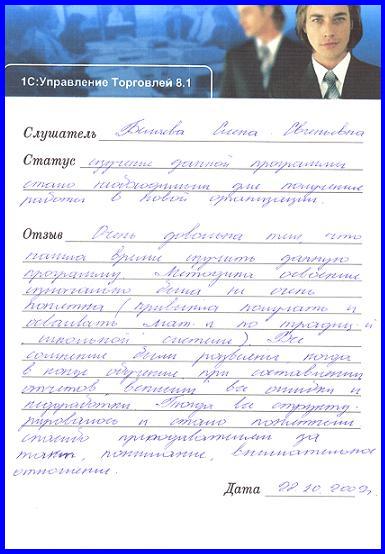 1С:Управление Торговлей 8.1
Слушатель Беляева Елена Евгеньевна
Статус изучение данной программы
стало необходимым для получения
работы в новой организации.
Отзыв Очень довольна тем, что
нашла время изучить данную
программу. Методика освоения
изначально была не очень
понятна (привыкла получать и
осваивать мат-л по традиц-й
школьной системе). Все
сомнения были развеяны, когда
в конце обучения при составлении
отчетов, всплыли все ошибки и
недоработки. Тогда все структу-
рировалось и стало понятным
спасибо преподавателям за
такт, понимание, внимательное
отношение.
Дата 22.10.2009г.